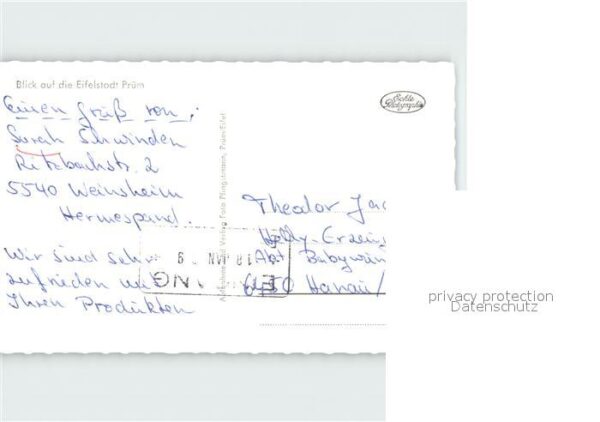 Blick auf die Eifelstadt Prüm
Echte
Photographie
Einen Gruß von:
Sarah Schwinden
Ritzbachstr. 2
5540 Weinsheim
Hermespand.
Wir sind sehr
zufrieden mit
Ihren Produkten
Verlag Foto
Prüm/Eifel
Theodor
Abt Babywän
6450 Hanau/
18. JAN. 9
EINGANG
privacy protection
Datenschutz